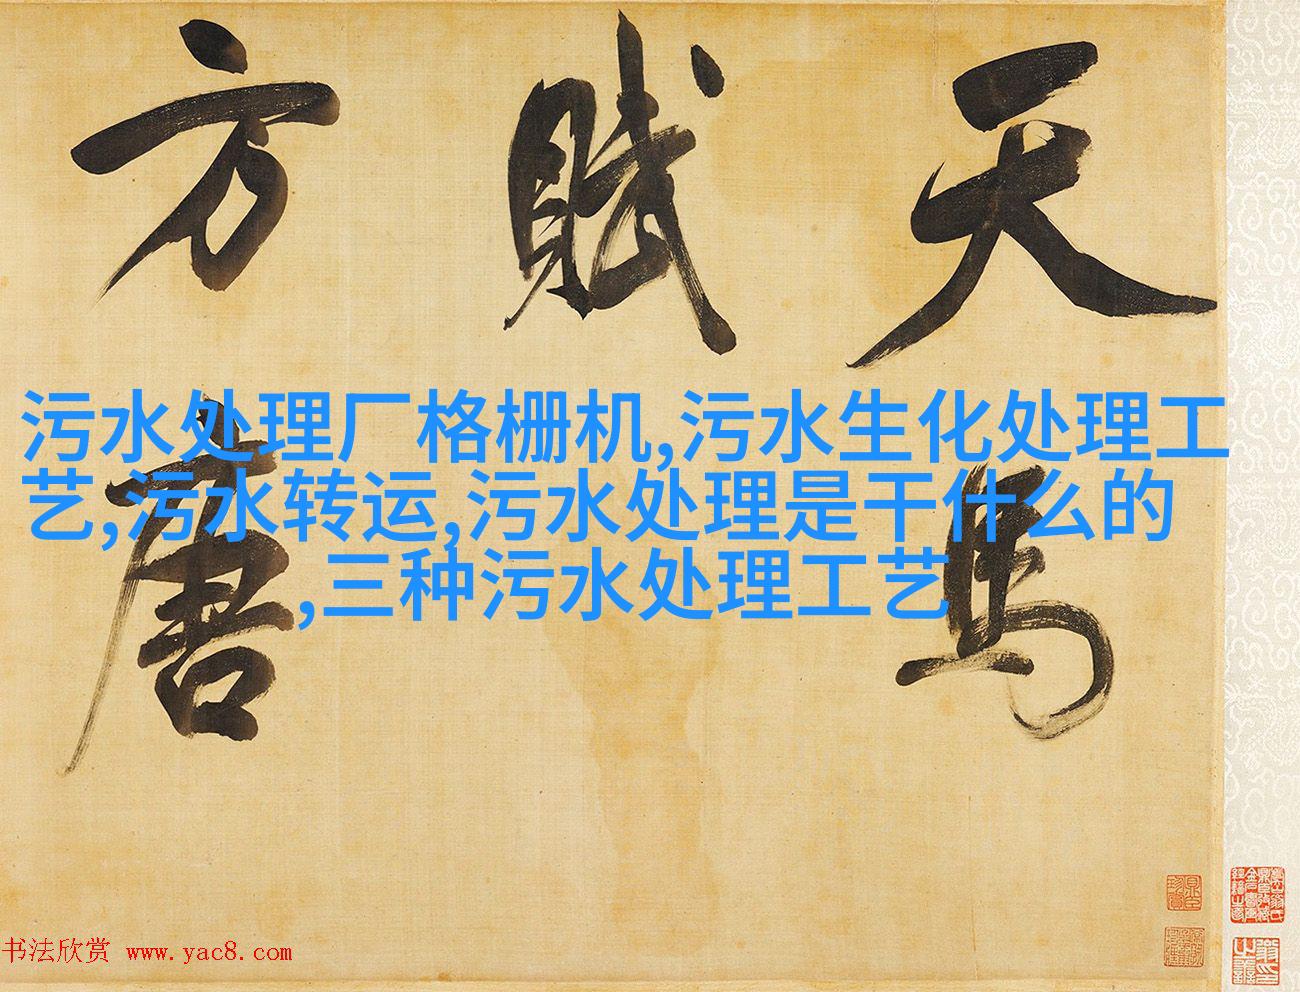 天馬
賦
方唐
污水处理厂格栅机,污水生化处理工
艺,污水转运,污水处理是干什么的
,三种污水处理工艺
书法欣赏 www.yac8.com